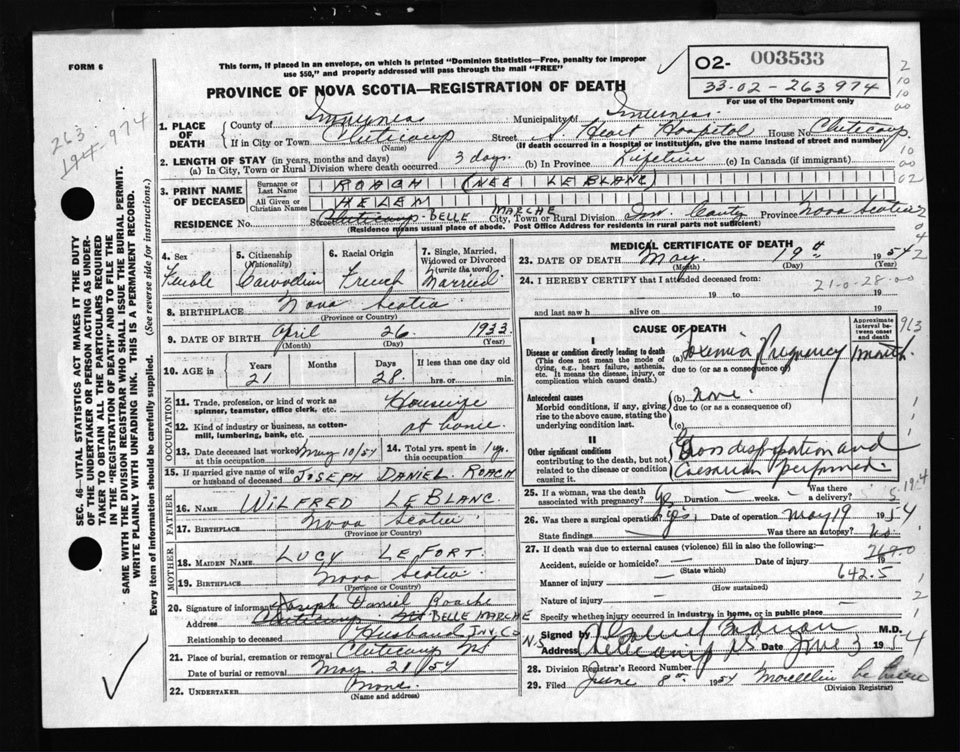 FORM 6
This form, if placed in an envelope, on which is printed "Dominion Statistics—Free, penalty for improper
use $50," and properly addressed will pass through the mail "FREE"
PROVINCE OF NOVA SCOTIA—REGISTRATION OF DEATH
02- 003533
33-02-263974
For use of the Department only
263
974
1. PLACE OF DEATH
County of Inverness
Municipality of Inverness
If in City or Town Cheticamp Street S. Heart Hospital House No. Cheticamp
(Name) (If death occurred in a hospital or institution, give the name instead of street and number)
2. LENGTH OF STAY (in years, months and days)
(a) In City, Town or Rural Division where death occurred 3 days (b) In Province Lifetime (c) In Canada (if immigrant)
3. PRINT NAME OF DECEASED
Surname or Last Name ROACH (NEE LE BLANC)
All Given or Christian Names HELEN
RESIDENCE No. Street Cheticamp BELLE MARCHE City, Town or Rural Division Inv. County Province Nova Scotia
(Residence means usual place of abode. Post Office Address for residents in rural parts not sufficient)
4. Sex Female
5. Citizenship (Nationality) Canadian
6. Racial Origin French
7. Single, Married, Widowed or Divorced (write tha word) Married
8. BIRTHPLACE Nova Scotia
(Province or Country)
9. DATE OF BIRTH April 26 1933
(Month) (Day) (Year)
10. AGE in Years 21 Months Days 28 If less than one day old hrs. or min.
OCCUPATION
11. Trade, profession, or kind of work as spinner, teamster, office clerk, etc. Housewife
12. Kind of industry or business, as cotton-mill, lumbering, bank, etc. at home
13. Date deceased last worked at this occupation May 10/54
14. Total yrs. spent in this occupation 1 yr.
15. If married give name of wife or husband of deceased JOSEPH DANIEL ROACH
FATHER
16. Name WILFRED LE BLANC
17. Birthplace Nova Scotia
(Province or Country)
MOTHER
18. MAIDEN NAME LUCY LE FORT.
19. Birthplace Nova Scotia
(Province or Country)
20. Signature of informant Joseph Daniel Roache
Address Cheticamp NS BELLE MARCHE
Relationship to deceased Husband INV. CO
21. Place of burial, cremation or removal Cheticamp NS
Date of burial or removal May 21/54
22. UNDERTAKER None
(Name and address)
MEDICAL CERTIFICATE OF DEATH
23. DATE OF DEATH May 19th 1954
(Month) (Day) (Year)
24. I HEREBY CERTIFY that I attended deceased from:
21-0-28-00
19 to 19
and last saw h alive on 19
CAUSE OF DEATH
Approximate interval between onset and death
I
Disease or condition directly leading to death
(This does not mean the mode of dying, e.g., heart failure, asthenia, etc. It means the disease, injury, or complication which caused death.)
(a) Toxemia Pregnancy Month
due to (or as a consequence of)
Antecedent causes
Morbid conditions, if any, giving rise to the above cause, stating the underlying condition last.
(b) None.
due to (or as a consequence of)
II
Other significant conditions
contributing to the death, but not related to the disease or condition causing it.
disproportion and
Caesarian performed.
25. If a woman, was the death associated with pregnancy? yes Duration — weeks. — Was there a delivery?
26. Was there a surgical operation? yes, Date of operation May 19 1954
State findings Was there an autopsy? No
27. If death was due to external causes (violence) fill in also the following:—
Accident, suicide or homicide? — Date of injury 19
(State which)
642.5
Manner of injury —
(How sustained)
Nature of injury —
Specify whether injury occurred in industry, in home, or in public place
Signed by M.D.
Address Cheticamp NS Date June 3 1954
28. Division Registrar's Record Number
29. Filed June 8th 1954
(Division Registrar)
SEC. 46—VITAL STATISTICS ACT MAKES IT THE DUTY
OF THE UNDERTAKER OR PERSON ACTING AS UNDER-
TAKER TO OBTAIN ALL THE PARTICULARS REQUIRED
IN THE "REGISTRATION OF DEATH" AND TO FILE THE
SAME WITH THE DIVISION REGISTRAR WHO SHALL ISSUE THE BURIAL PERMIT.
WRITE PLAINLY WITH UNFADING INK. THIS IS A PERMANENT RECORD.
Every item of information should be carefully supplied. (See reverse side for instructions.)